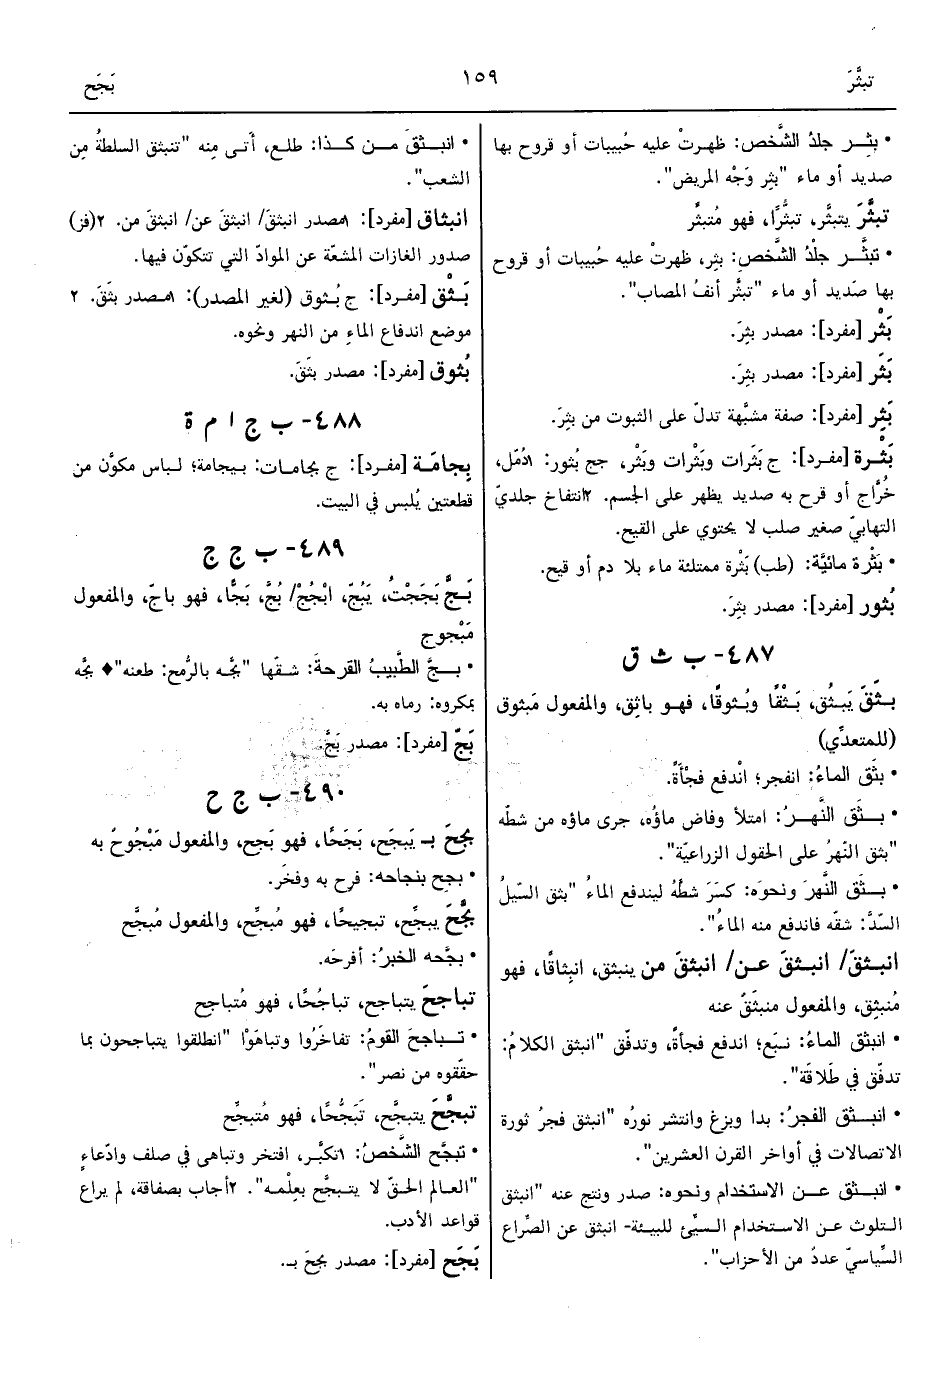 تبثَّرَ
١٥٩
بَجَح
• بثِـر جلدُ الشَّخص: ظهرتْ عليه حُبيبات أو قروح بها
صديد أو ماء "بثِر وَجْه المريض".
تبثَّرَ يتبثَّر، تبثُّرًا، فهو مُتبثِّر
• تبثَّـر جلْدُ الشَّخصِ: بثِر، ظهرتْ عليه حُبيبات أو قروح
بها صَديد أو ماء "تبثَّر أنفُ المصاب".
بَثْر [مفرد]: مصدر بثِرَ.
بَثَر [مفرد]: مصدر بثِرَ.
بَثِر [مفرد]: صفة مشبَّهة تدلّ على الثبوت من بثِرَ.
بَثْرة [مفرد]: ج بَثَرات وبَثْرات وبَثْر، جج بثور: ١دُمَّل،
خُرَّاج أو قرح به صديد يظهر على الجسم. ٢انتفاخ جلديّ
التهابيّ صغير صلب لا يحتوي على القيح.
• بَثْرة مائيَّة: (طب) بَثْرة ممتلئة ماء بلا دم أو قيح.
بُثور [مفرد]: مصدر بثِرَ.
٤٨٧- ب ث ق
بـثَقَ يَبثُق، بَـثْقًا وبُثوقًا، فهـو باثِق، والمفعول مَبثوق
(للمتعدِّي)
• بثَق الماءُ: انفجر؛ انْدفع فجْأةً.
• بـثَق النَّهـرُ: امتلأ وفاض ماؤُه، جرى ماؤه من شطّه
"بثق النّهرُ على الحقول الزراعيّة".
• بـثَق النَّهرَ ونحوَه: كسَرَ شطَّهُ ليندفع الماءُ "بثق السّيلُ
السّدَّ: شقّه فاندفع منه الماءُ".
انبـثقَ/ انبـثقَ عـن/ انبثقَ من ينبثق، انبِثاقًا، فهو
مُنبثِق، والمفعول منبثَقٌ عنه
• انبثق الماءُ: نـبَع؛ اندفع فجأةً، وتدفّق "انبثق الكلامُ:
تدفّق في طَلاقَة".
• انبـثق الفجرُ: بدا وبزغ وانتشر نورُه "انبثق فجرُ ثورة
الاتصالات في أواخر القرن العشرين".
• انبـثق عـن الاستخدام ونحوه: صدر ونتج عنه "انبثق
التلوث عـن الاستخدام السـيِّئ للبيئة- انبثق عن الصِّراع
السِّياسيّ عددٌ من الأحزاب".
• انبـثقَ مـن كـذا: طلـع، أتـى مِنه "تنبثق السلطةُ مِن
الشعب".
انبثاق [مفرد]: ١مصدر انبثقَ/ انبثقَ عن/ انبثقَ من. ٢(فز)
صدور الغازات المشعّة عن الموادّ التي تتكوّن فيها.
بَـثْق [مفـرد]: ج بُثوق (لغير المصدر): ١مـصدر بثَقَ. ٢
موضع اندفاع الماءِ من النهر ونحوه.
بُثوق [مفرد]: مصدر بثَقَ.
٤٨٨- ب ج ا م ة
بِجامَـة [مفـرد]: ج بجامـات: بـيجامة؛ لـباس مكوَّن من
قطعتين يُلبس في البيت.
٤٨٩- ب ج ج
بَـجَّ بَجَجْتُ، يَبُجّ، ابْجُجْ/ بُجَّ، بَجًّا، فهو باجّ، والمفعول
مَبْجوج
• بـجَّ الطَّبيبُ القرحةَ: شـقّها "بجَّـه بالرُّمح: طعنه"♦ بجَّه
بمكروه: رماه به.
بَجّ [مفرد]: مصدر بَجَّ.
٤٩٠- ب ج ح
بجَحَ بـ يَبجَح، بَجَحًا، فهو بَجِح، والمفعول مَبْجُوحٌ به
• بجِح بنجاحه: فرح به وفخَر.
بجَّحَ يبجِّح، تبجيحًا، فهو مُبجِّح، والمفعول مُبجَّح
• بجَّحه الخبرُ: أفرحَه.
تباجحَ يتباجح، تباجُحًا، فهو مُتباجح
• تـباجحَ القومُ: تفاخَرُوا وتباهَوْا "انطلقوا يتباجحون بما
حقّقوه من نصر".
تبجَّحَ يتبجَّح، تَبَجُّحًا، فهو مُتبجِّح
• تبجَّح الشَّخصُ: ١تكبَّر، افتخر وتباهى في صلف وادّعاءٍ
"العالم الحقّ لا يتـبجَّح بعِلْمه". ٢أجاب بصفاقة، لم يراع
قواعد الأدب.
بَجَح [مفرد]: مصدر بجَحَ بـ.